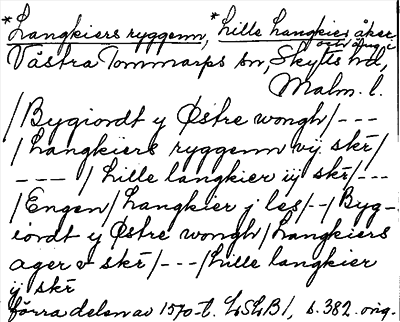 *Langkiers ryggenn, *Lille Langkier åker
och äng i
Västra Tommarps sn, Skytts hd,
Malm. l.
/Bygiordt y Østre wongh/---
/Langkiers ryggenn vij skr/
--- /Lille langkier iij skr/---
/Engen/Langkier j les/--/Byg-
iordt y Østre wongh/Langkiers
ager v skr/---/Lille langkier
ij skr
förra delen av 1570-t. LSLB1, s. 382 orig.